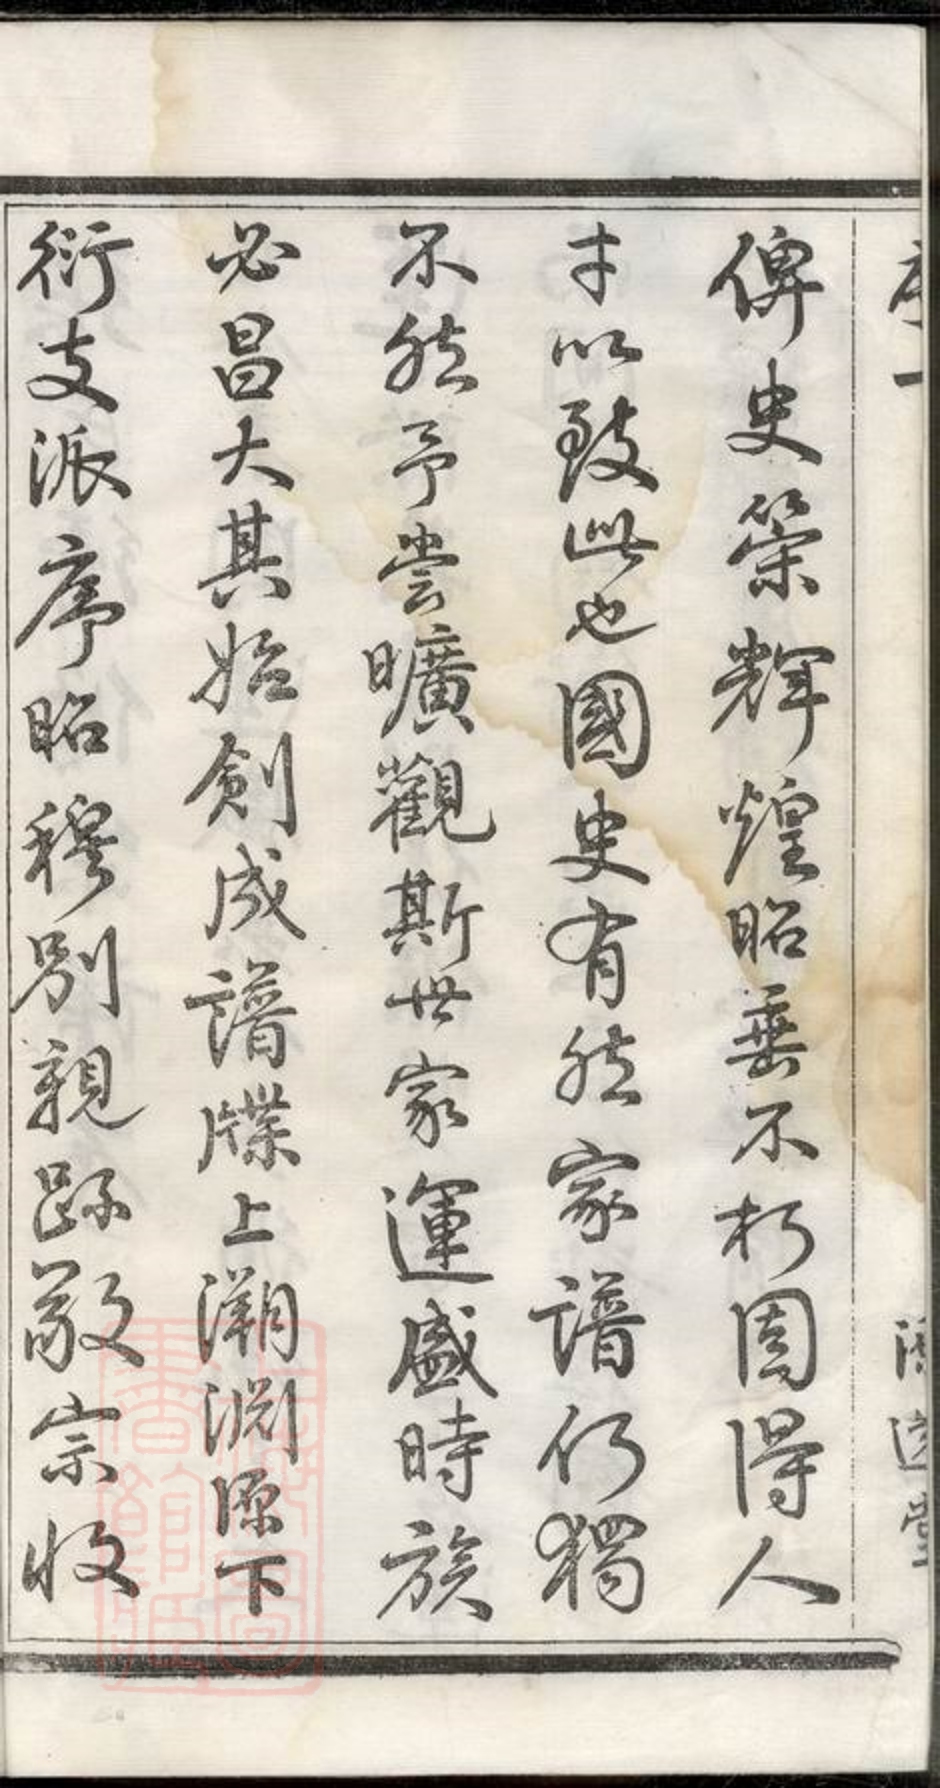 俾史策輝煌昭垂不朽固得人
才以致此也國史有然家譜何獨
不然予嘗曠觀斯世家運盛時族
必昌大其始剏成譜牒上溯淵源下
衍支派序昭穆別親疏敬宗收